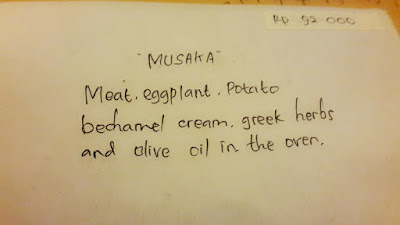 Rp 92.000
"MUSAKA"
Meat. eggplant. Potato
bechamel cream. greek herbs
and olive oil in the oven.